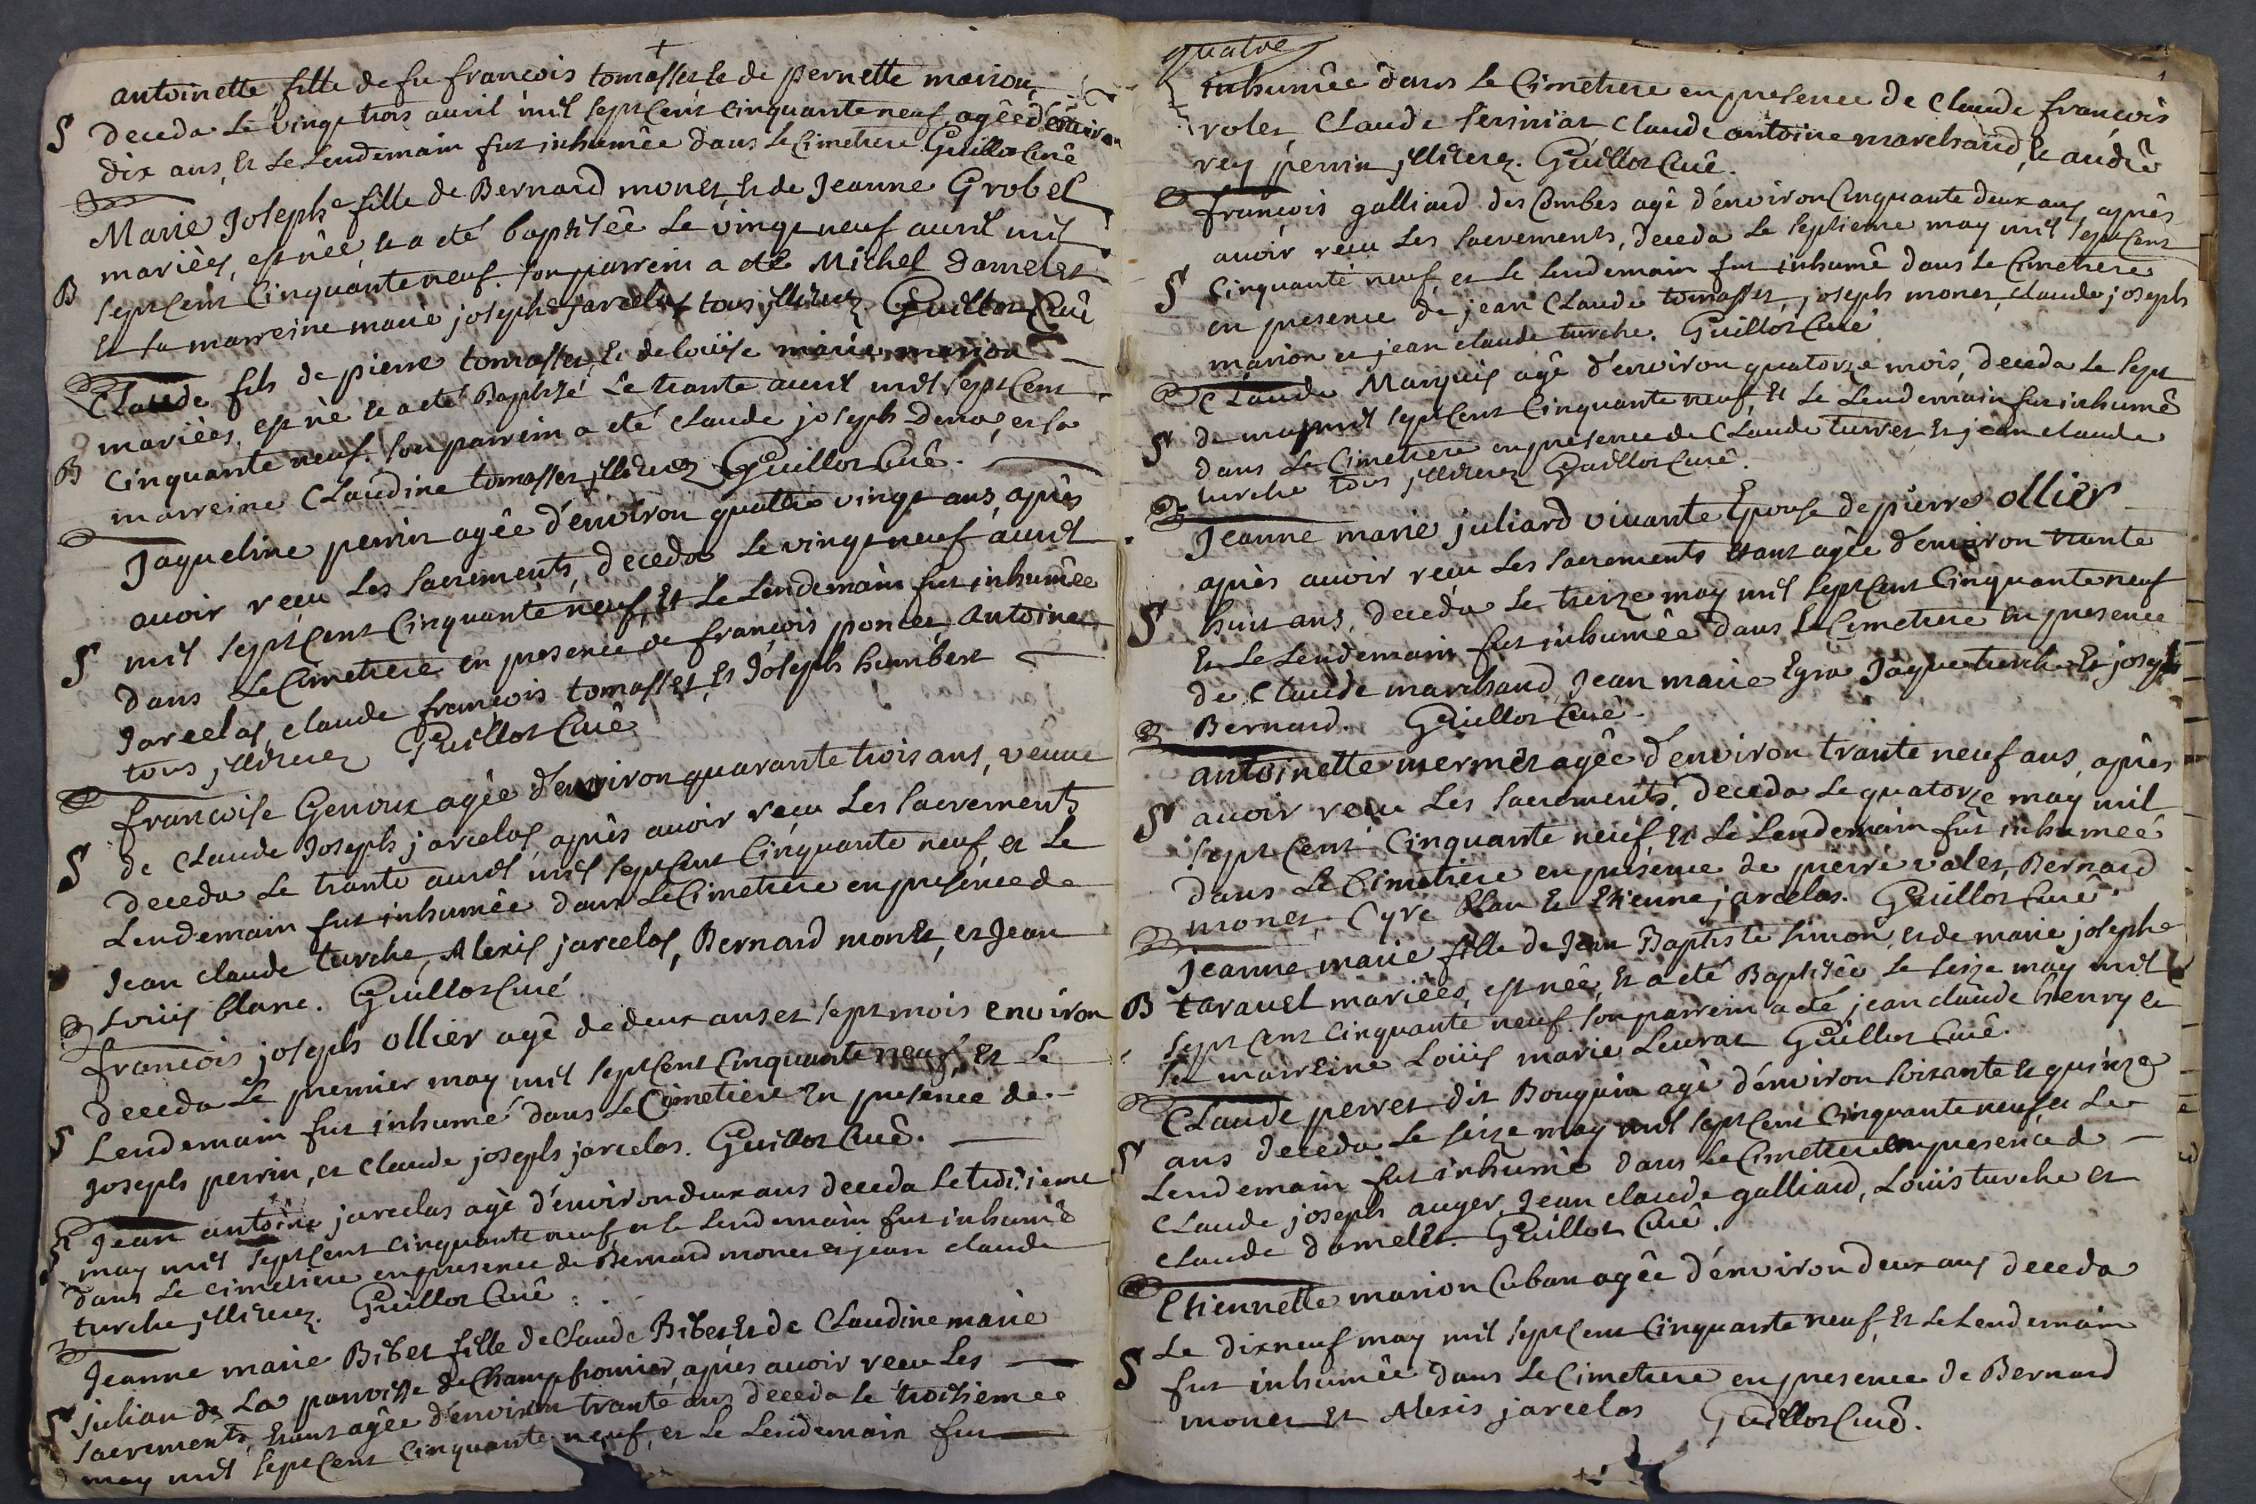 antoinette fille de fu francois tomasset et de pernette marion
S deceda le vingt trois auril mil sept cent cinquante neuf, agée d'environ
dix ans, et le lendemain fut inhumée dans le Cimetiere Guillot Curé
Marie Josephe fille de Bernard monet, et de Jeanne Grobel
mariés, est née, et a eté baptisée le vingt neuf auril mil
B sept cent Cinquante neuf. son parrein a eté Michel damelet
Et sa marreine marie josephe jarcelas tous jlliterez Guillot Curé
Claude fils de pierre tomasset, et de loüise marie marion
mariés, est né et a eté Baptisé le trante auril mil sept cent
B cinquante neuf. son parrein a eté claude joseph et sa
marreine Claudine tomasset, jlliterez Guillot Curé.
Jaqueline perrin agée d'environ quattre vingt ans, après
avoir reçu les sacrements, deceda le vingt neuf auril
S mil sept cent cinquante neuf, et le lendemain fut inhumée
dans le Cimetiere en presence de françois poncet, antoine
Jarcelas, claude francois tomasset, et Joseph humbert
tous jlliterez Guillot Curé
francoise Genoux agée d'environ quarante trois ans, veuve
S de Claude Joseph jarcelas, après avoir reçu les sacrements
deceda le trante auril mil sept cent cinquante neuf, et le
Lendemain fut inhumée dans le Cimetiere en presence de
Jean claude turche, Alexis jarcelas, Bernard monet, et Jean
Loüis blanc. Guillot Curé
francois joseph ollier agé de deux ans et sept mois environ
deceda le premier may mil sept cent cinquante neuf, et le
S Lendemain fut inhumé dans le Cimetiere en presence de
joseph perrin, et claude joseph jarcelas. Guillot Curé.
Jean antoine jarcelas agé d'environ deux ans deceda le troisieme
S may mil sept cent cinquante neuf, et le lendemain fut inhumé
dans le cimetiere en presence de Bernard monet et jean claude
turche jlliterez. Guillot Curé
Jeanne marie Bibet fille de Claude Bibet et de Claudine marie
julian de La parroisse de Champfromier, après avoir reçu les
S sacrements, etant agée d'environ trante ans deceda le troisieme
may mil sept cent cinquante neuf, et le Lendemain fut
quatre
inhumée dans le Cimetiere en presence de Claude françois
volet Claude claude antoine marchand, et andré
rey perrin jlliterez. Guillot Curé.
francois galliard des Combes agé d'environ Cinquante deux ans, après
avoir reçu les sacrements, deceda le septieme may mil sept cent
S Cinquante neuf, et le lendemain fut inhumé dans le Cimetiere
en presence de jean Claude tomasset, joseph monet, claude joseph
marion et jean claude turche. Guillot Curé
Claude Marquis agé d'environ quatorze mois, deceda le sept
S de may mil sept cent cinquante neuf, et le Lendemain fut inhumé
dans le Cimetiere en presence de Claude turret et jean claude
turche tous jlliterez Guillot Curé.
Jeanne marie juliard vivante Epouse de pierre ollier
après avoir reçu les sacrements etant agée d'environ trante
S huit ans, deceda le treize may mil sept cent cinquante neuf
Et le Lendemain fut inhumée dans le Cimetiere en presence
de Claude marchand, Jean marie Egra Jaque turche et joseph
Bernard. Guillot Curé.
antoinette mermet agée d'environ trante neuf ans, après
S avoir reçu les sacrements, deceda le quatorze may mil
sept cent cinquante neuf, et le Lendemain fut inhumée
dans le Cimetiere en presence de pierre valet, Bernard
monet, Cyre blan et Etienne jarcelas. Guillot Curé.
Jeanne marie fille de Jean Baptiste simon, et de marie josephe
B taravel mariés, est née, et a eté Baptisée le seize may mil
sept cent cinquante neuf. son parrein a eté jean claude henry et
sa marreine Loüis marie Leurat Guillot Curé.
Claude perret dit Bouquin agé d'environ soixante et quinze
S ans deceda le seize may mil sept cent cinquante neuf, et le
Lendemain fut inhumé dans le Cimetiere en presence de
Claude joseph auger, Jean claude galliard, Loüis turche et
claude damelet. Guillot Curé.
Etiennette marion Cuban agée d'environ deux ans deceda
Le dixneuf may mil sept cent cinquante neuf, et le Lendemain
S fut inhumée dans le Cimetiere en presence de Bernard
monet et Alexis jarcelas Guillot Curé.